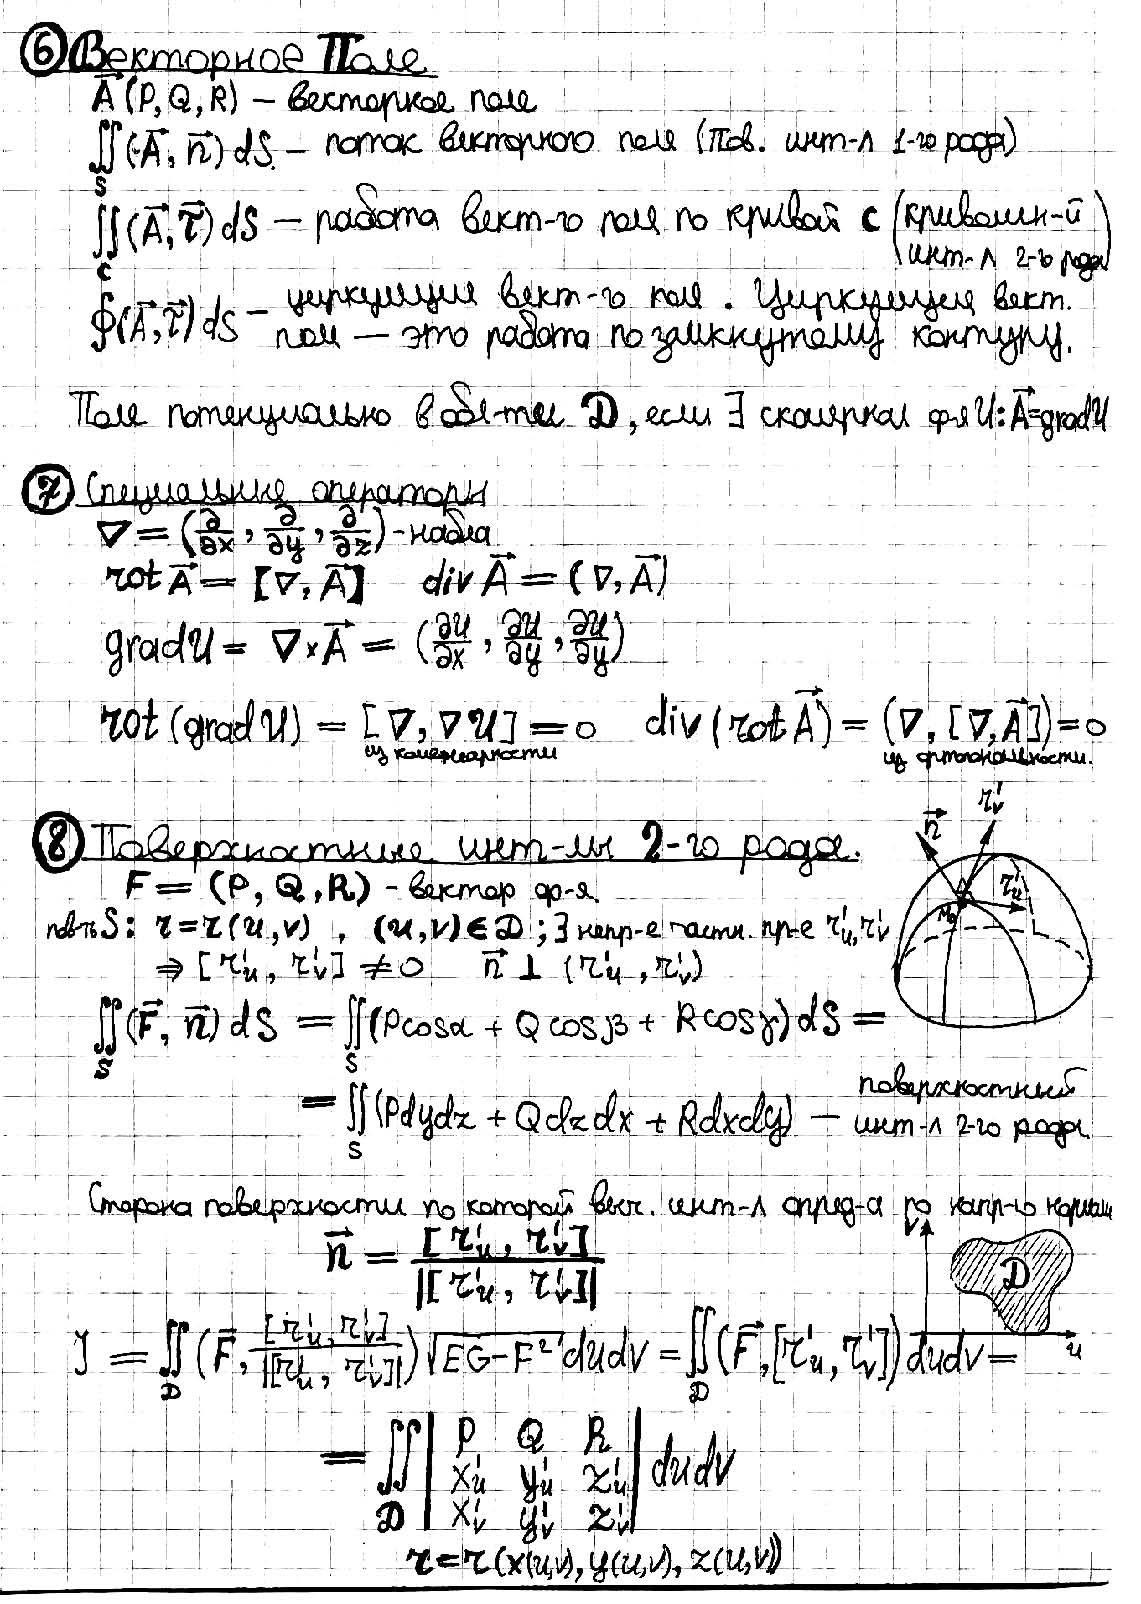 ⑥ Векторное Поле
A⃗ (P, Q, R) – векторное поле
∬_S (A⃗, n⃗) dS – поток векторного поля (Пов. инт-л 1-го рода)
∬_C (A⃗, τ⃗) dS – работа вект-го поля по кривой C (криволин-й инт-л 2-го рода)
∮(A⃗, τ⃗) dS – циркуляция вект-го поля. Циркуляция вект.
поля — это работа по замкнутому контуру.
Поле потенциально в обл-ти D, если ∃ скалярная ф-я U: A⃗=gradU
⑦ Специальные операторы
∇ = (∂/∂x, ∂/∂y, ∂/∂z) - набла
rot A⃗ = [∇, A⃗] div A⃗ = (∇, A⃗)
grad U = ∇×A⃗ = (∂U/∂x, ∂U/∂y, ∂U/∂y)
rot (grad U) = [∇, ∇U] = 0 div (rot A⃗) = (∇, [∇, A⃗]) = 0
из коллинеарности из ортогональности.
⑧ Поверхностные инт-лы 2-го рода.
F = (P, Q, R) - вектор ф-я.
пов-ть S: r = r(u, v), (u, v) ∈ D; ∃ непр-е частн. пр-е r'u, r'v
⇒ [r'u, r'v] ≠ 0 n⃗ ⊥ (r'u, r'v)
n⃗ r'v r'u M₀
∬_S (F⃗, n⃗) dS = ∬_S (Pcosα + Qcosβ + Rcosγ) dS =
= ∬_S (Pdydz + Qdzdx + Rdxdy) — поверхностный инт-л 2-го рода.
Сторона поверхности по которой выч. инт-л опред-а по напр-ю нормали
n⃗ = [r'u, r'v] / |[r'u, r'v]|
v D u
J = ∬_D (F⃗, [r'u, r'v] / |[r'u, r'v]|) √(EG-F²) dudv = ∬_D (F⃗, [r'u, r'v]) dudv =
= ∬_D | P Q R
x'u y'u z'u
x'v y'v z'v | dudv
r = r(x(u,v), y(u,v), z(u,v))